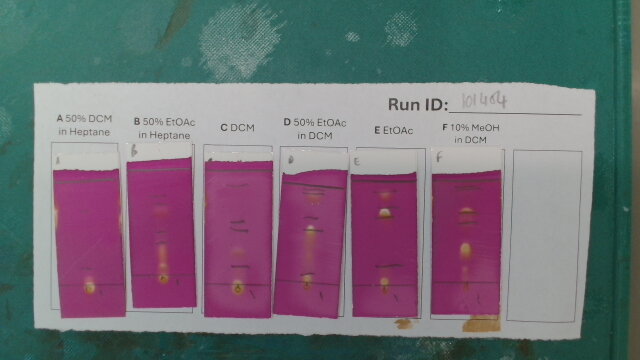 Run ID: 101404
A 50% DCM
in Heptane
B 50% EtOAc
in Heptane
C DCM
D 50% EtOAc
in DCM
E EtOAc
F 10% MeOH
in DCM
A
B
D
E
F